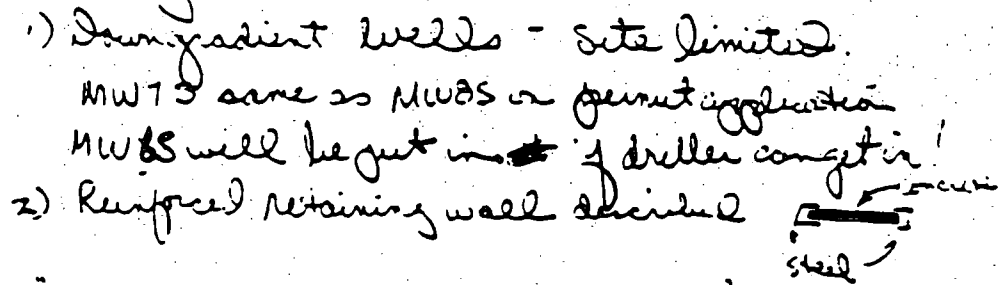 1) Downgradient wells - Site limited.
MW7S same as MW8S in permit application
MW6S will be put in if driller can get in!
2) Reinforced retaining wall described
steel